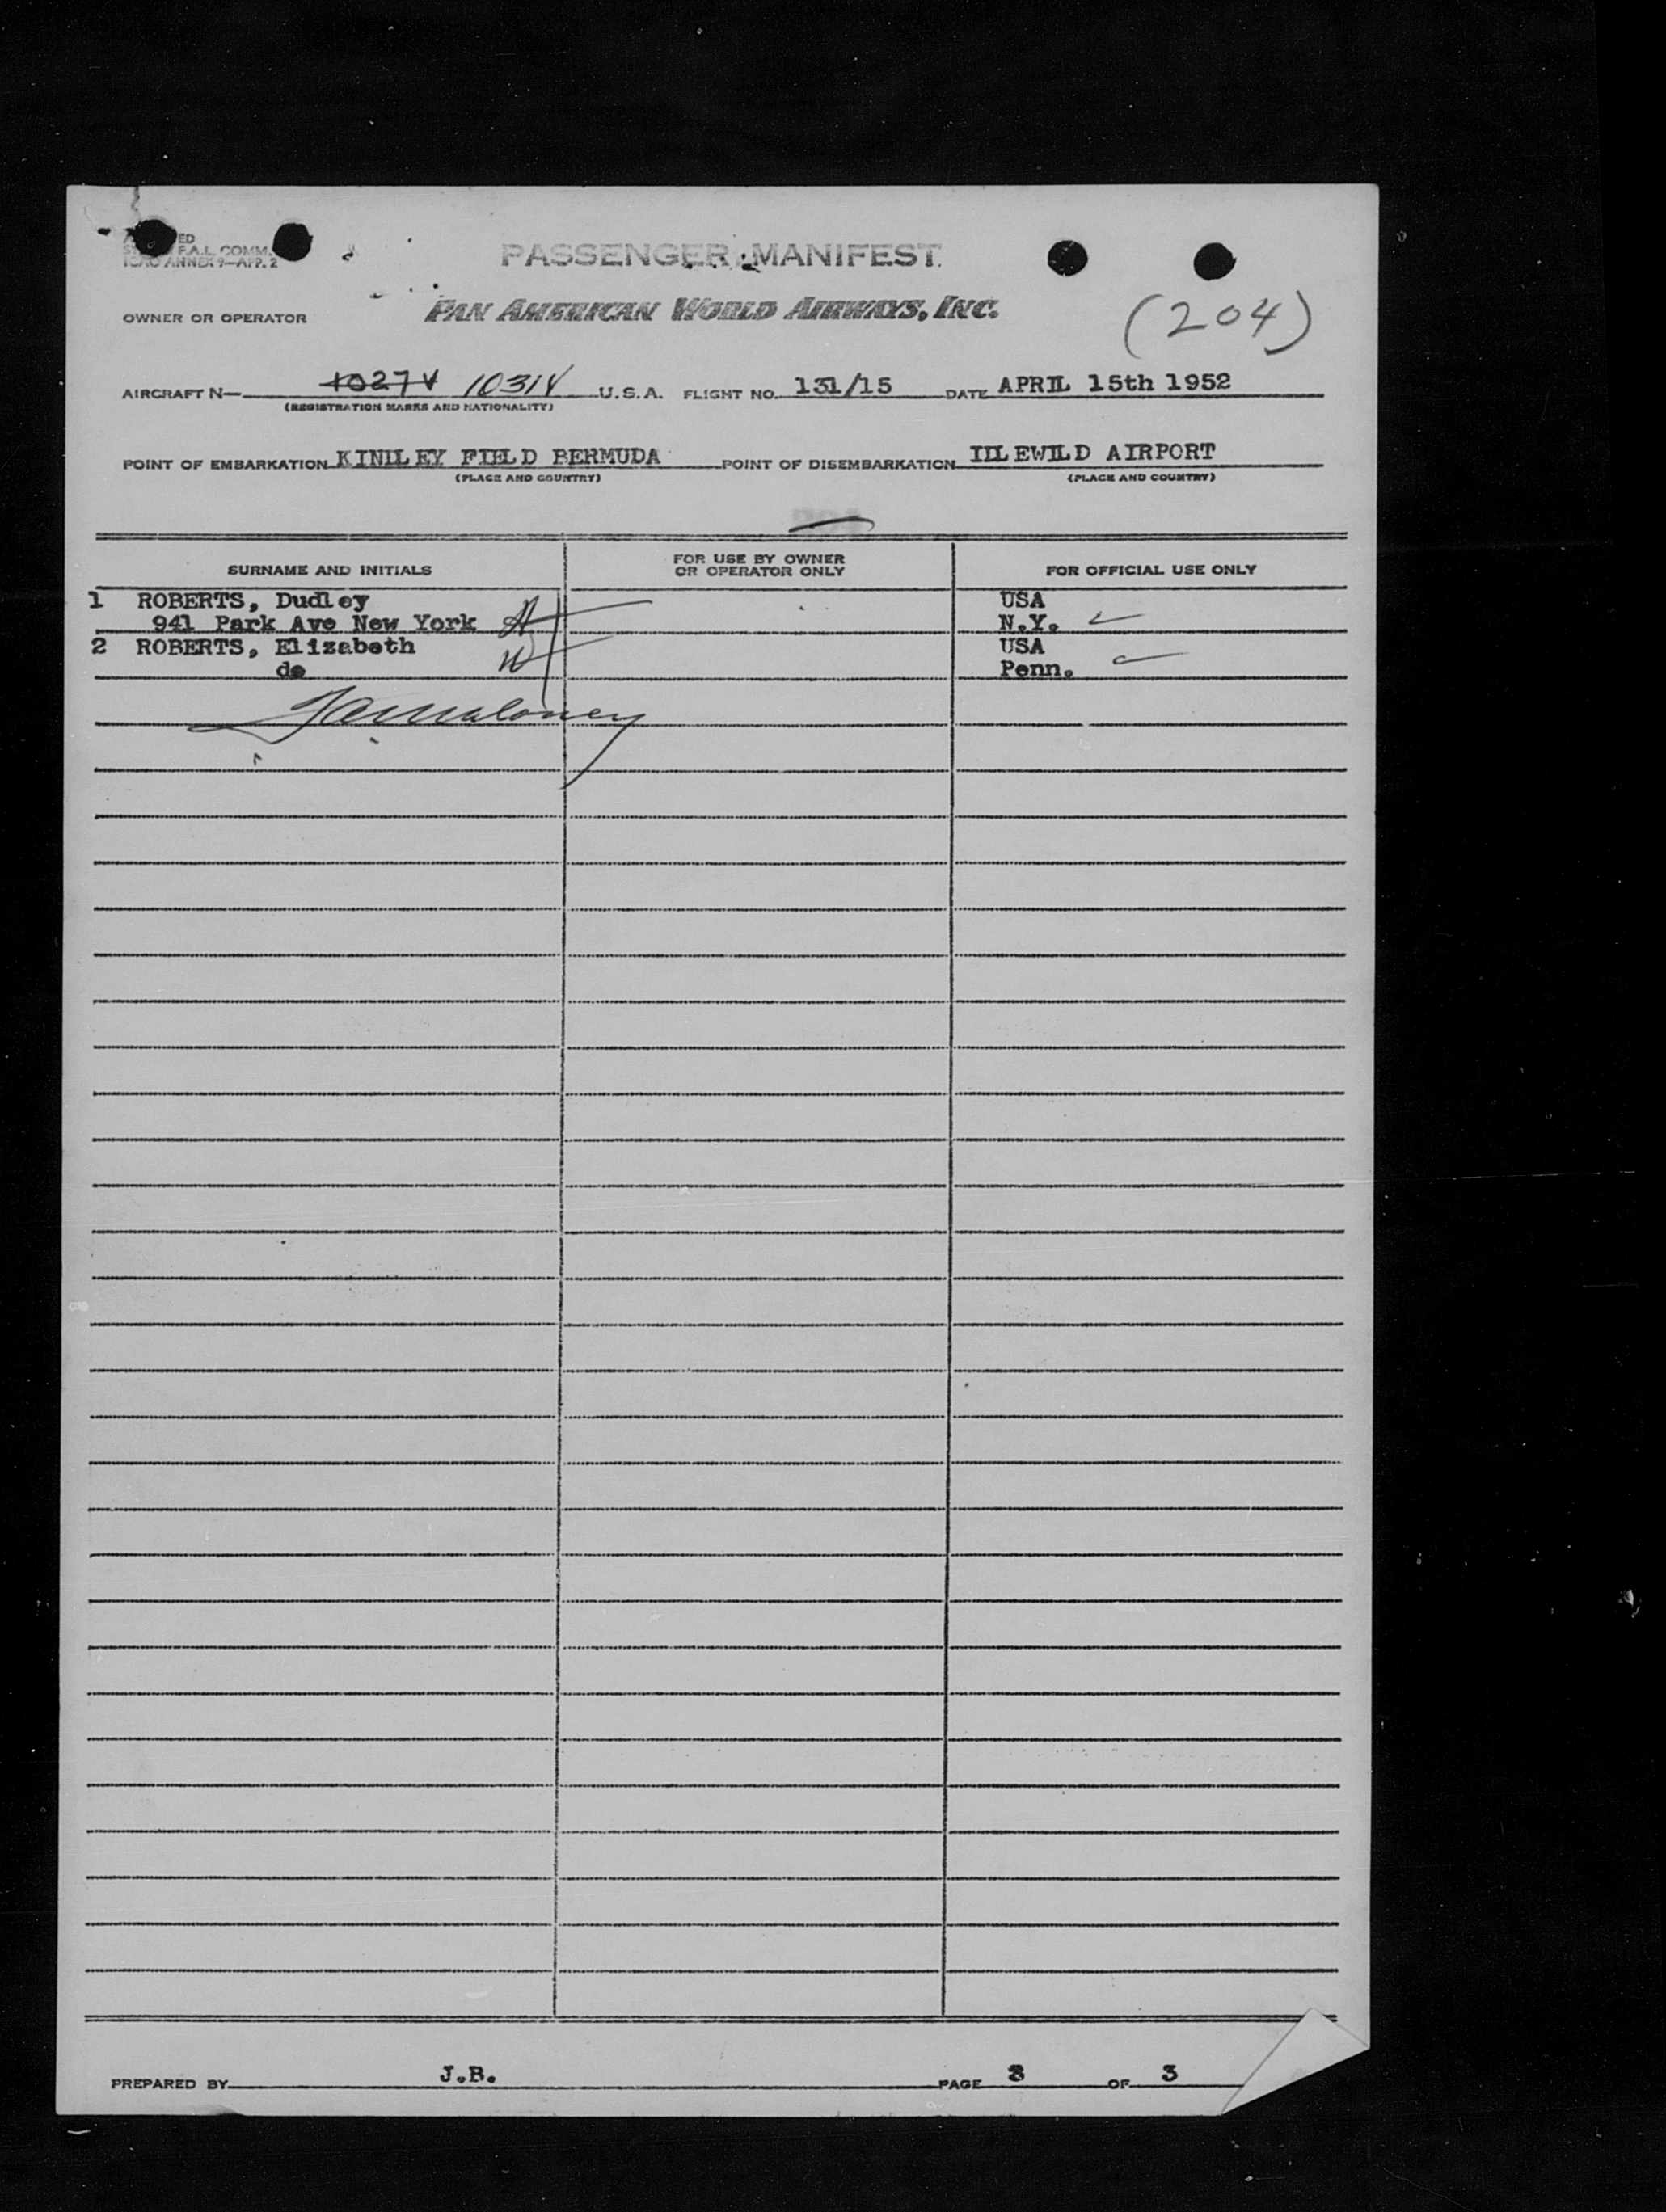 ED
F.A.L. COMM.
ICAO ANNEX 9—APP. 2
PASSENGER MANIFEST
OWNER OR OPERATOR PAN AMERICAN WORLD AIRWAYS, INC.
(204)
AIRCRAFT N— 1027V 1031V U.S.A. FLIGHT NO. 131/15 DATE APRIL 15th 1952
(REGISTRATION MARKS AND NATIONALITY)
POINT OF EMBARKATION KINDLEY FIELD BERMUDA POINT OF DISEMBARKATION IDLEWILD AIRPORT
(PLACE AND COUNTRY) (PLACE AND COUNTRY)
SURNAME AND INITIALS FOR USE BY OWNER OR OPERATOR ONLY FOR OFFICIAL USE ONLY
1 ROBERTS, Dudley USA
941 Park Ave New York N.Y.
2 ROBERTS, Elizabeth USA
do Penn.
PREPARED BY J.B. PAGE 3 OF 3